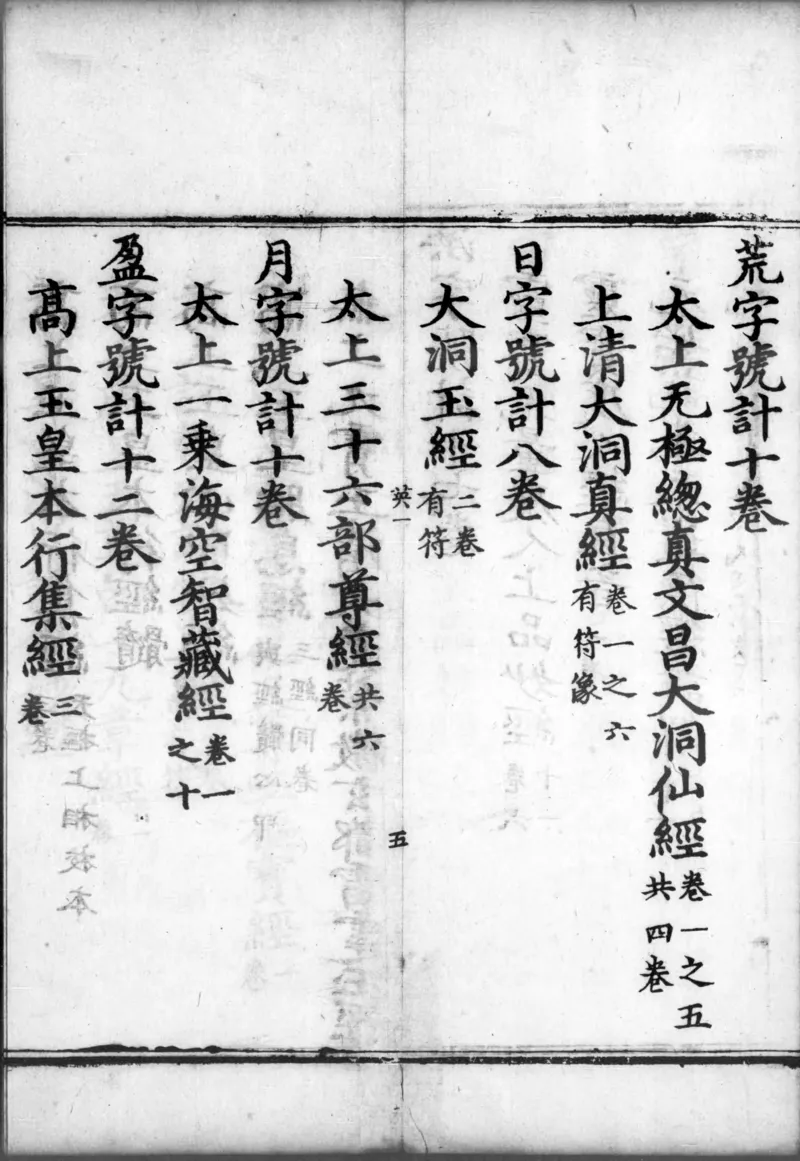 荒字號計十卷
太上无極緫真文昌大洞仙經卷一之五
共四卷
上清大洞真經卷一之六
有符像
日字號計八卷
大洞玉經二卷
有符
英一
五
太上三十六部尊經共六
卷
月字號計十卷
太上一乗海空智藏經卷一
之十
盈字號計十二卷
髙上玉皇本行集經三
卷